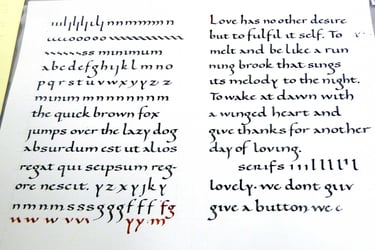 nnmmmmm
ss minimum
abcdefghijklmno
pqrstuvwxyyzz
minim nnnnnnnn
the quick brown fox
jumps over the lazy dog
absurdum est ut alios
regat qui seipsum reg-
ore nescit. yzxyjky
nmnmsssgggfff fg
Love has no other desire
but to fulfil it self. To
melt and be like a run
ning brook that sings
its melody to the night.
To wake at dawn with
a winged heart and
give thanks for another
day of loving.
serifs
lovely. we dont giv
give a button we c